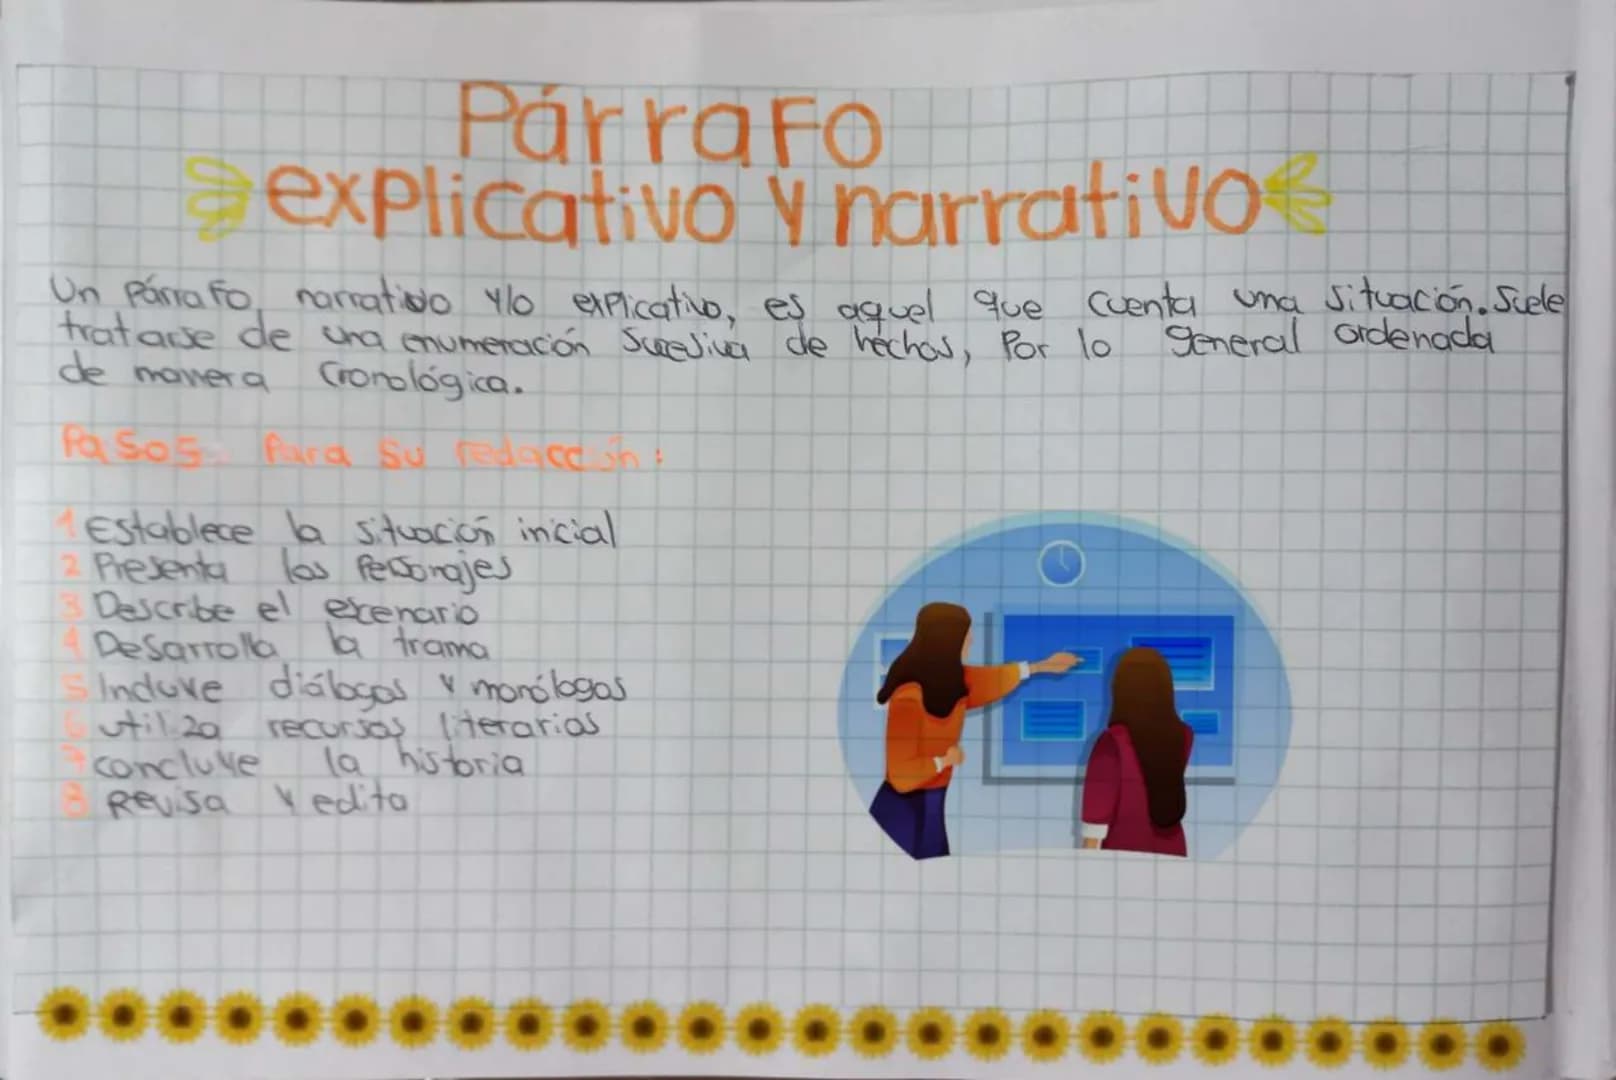 Párrafo
explicativo y narrativo
Un Párrafo narrativo y/o explicativo, es aquel que cuenta una situación. Suele
tratarse de una enumeración Sucesiva de hechos, Por lo general ordenada
de manera Cronológica.
Pasos Para su redacción:
1 Establece la situación inicial
2 Presenta los Personajes
3 Describe el escenario
4 Desarrolla la trama
5 Incluye diálogos y monólogos
6 utiliza recursos literarios
7 concluye la historia
8 Revisa y edita